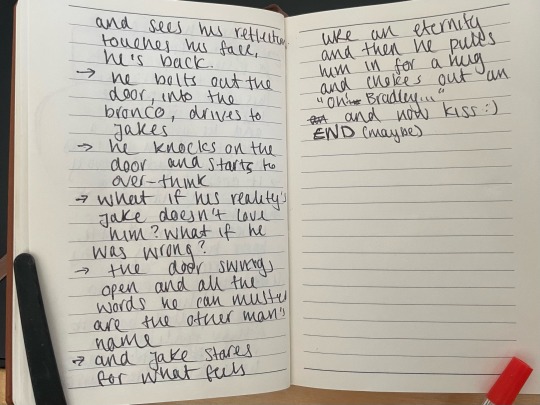 and sees his reflection
touches his face,
he's back.
→ he bolts out the
door, into the
bronco, drives to
Jakes
→ he knocks on the
door and starts to
over-think
→ what if his reality's
Jake doesn't love
him? What if he
was wrong?
→ the door swings
open and all the
words he can muster
are the other man's
name
→ and Jake stares
for what feels
like an eternity
and then he pulls
him in for a hug
and chokes out an
"oh... Bradley..."
and now kiss :)
END (maybe)